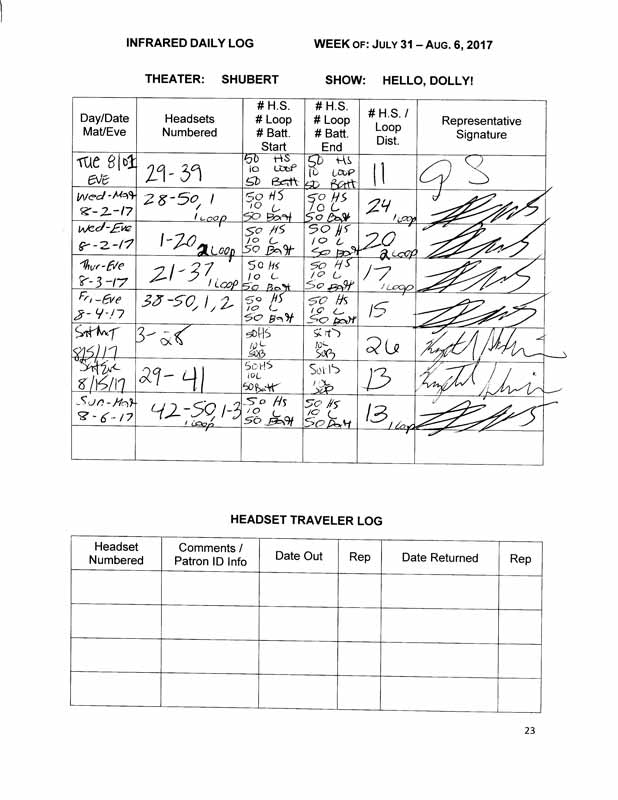 INFRARED DAILY LOG WEEK OF: JULY 31 – AUG. 6, 2017
THEATER: SHUBERT SHOW: HELLO, DOLLY!
Day/Date
Mat/Eve
Headsets
Numbered
# H.S.
# Loop
# Batt.
Start
# H.S.
# Loop
# Batt.
End
# H.S. /
Loop
Dist.
Representative
Signature
Tue 8/01
EVE
29-39
50 HS
10 LOOP
50 Batt
50 HS
10 LOOP
50 Batt
11
GS
Wed-Mat
8-2-17
28-50, 1
1 Loop
50 HS
10 L
50 Batt
50 HS
10 L
50 Batt
24
1 Loop
Wed-Eve
8-2-17
1-20
2 Loop
50 HS
10 L
50 Batt
50 HS
10 L
50 Batt
20
2 Loop
Thur-Eve
8-3-17
21-37
1 Loop
50 HS
10 L
50 Batt
50 HS
10 L
50 Batt
17
1 Loop
Fri-Eve
8-4-17
38-50, 1, 2
50 HS
10 L
50 Batt
50 HS
10 L
50 Batt
15
Sat Mat
8/5/17
3-28
50HS
10L
50B
10L
50B
26
Sat Eve
8/15/17
29-41
50HS
10L
50Batt
50HS
13
Sun-Mat
8-6-17
42-50, 1-3
1 Loop
50 HS
10 L
50 Batt
50 HS
10 L
50 Batt
13
1 Loop
HEADSET TRAVELER LOG
Headset
Numbered
Comments /
Patron ID Info
Date Out
Rep
Date Returned
Rep
23